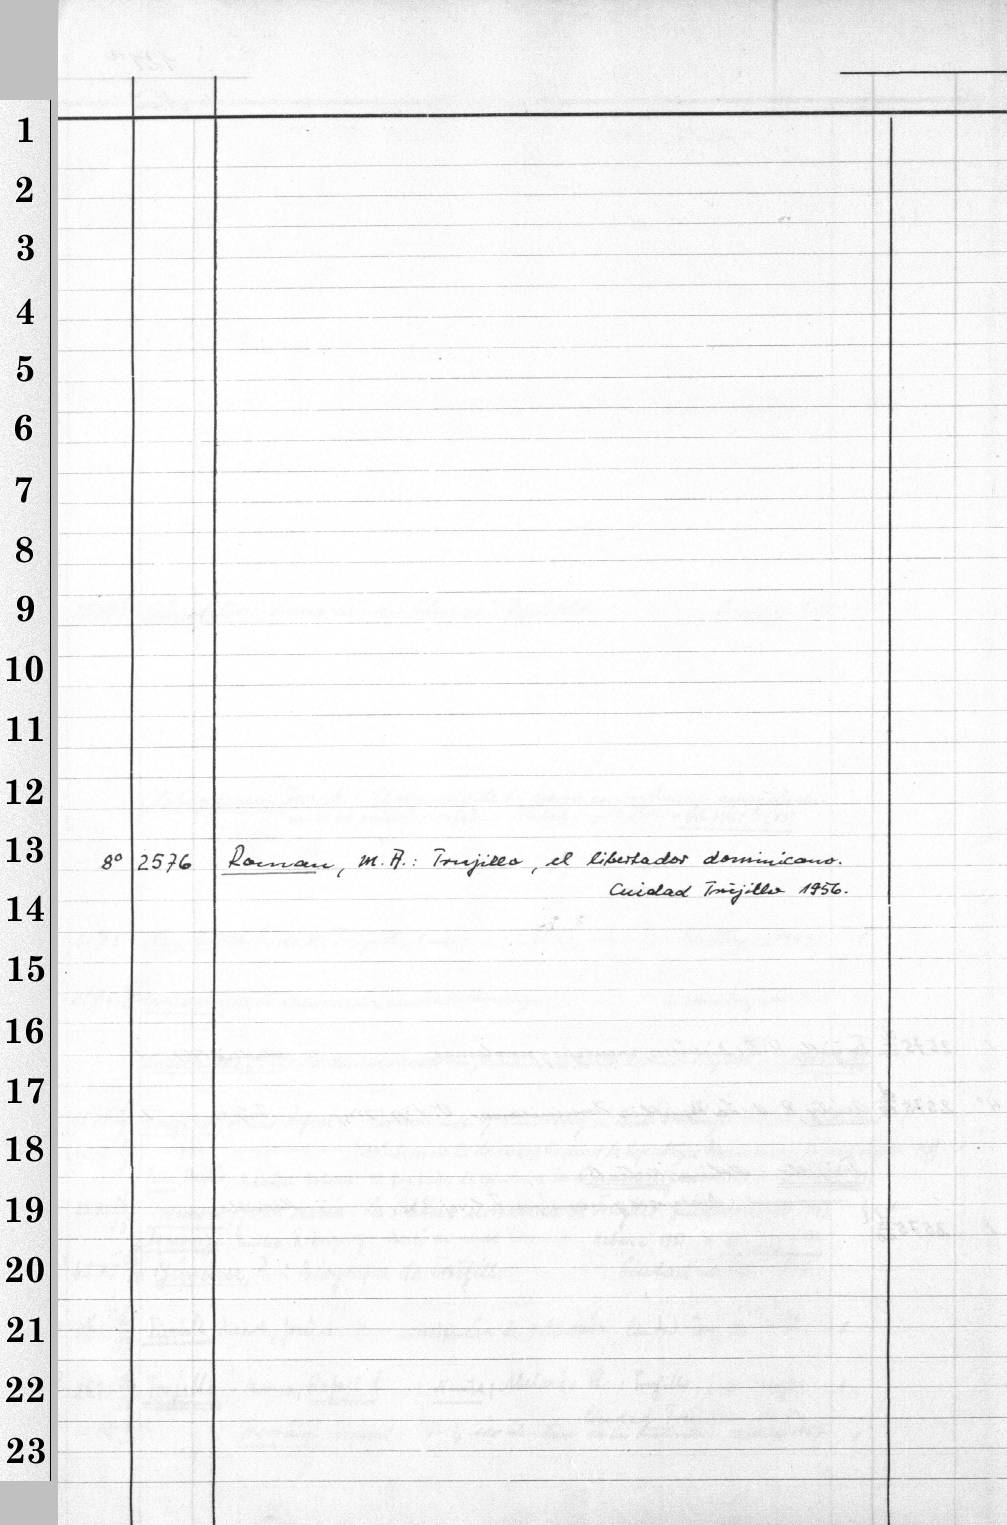 1
2
3
4
5
6
7
8
9
10
11
12
13
8° 2576 Roman, M. A.: Trujillo, el libertador dominicano.
Cuidad Trujillo 1956.
14
15
16
17
18
19
20
21
22
23